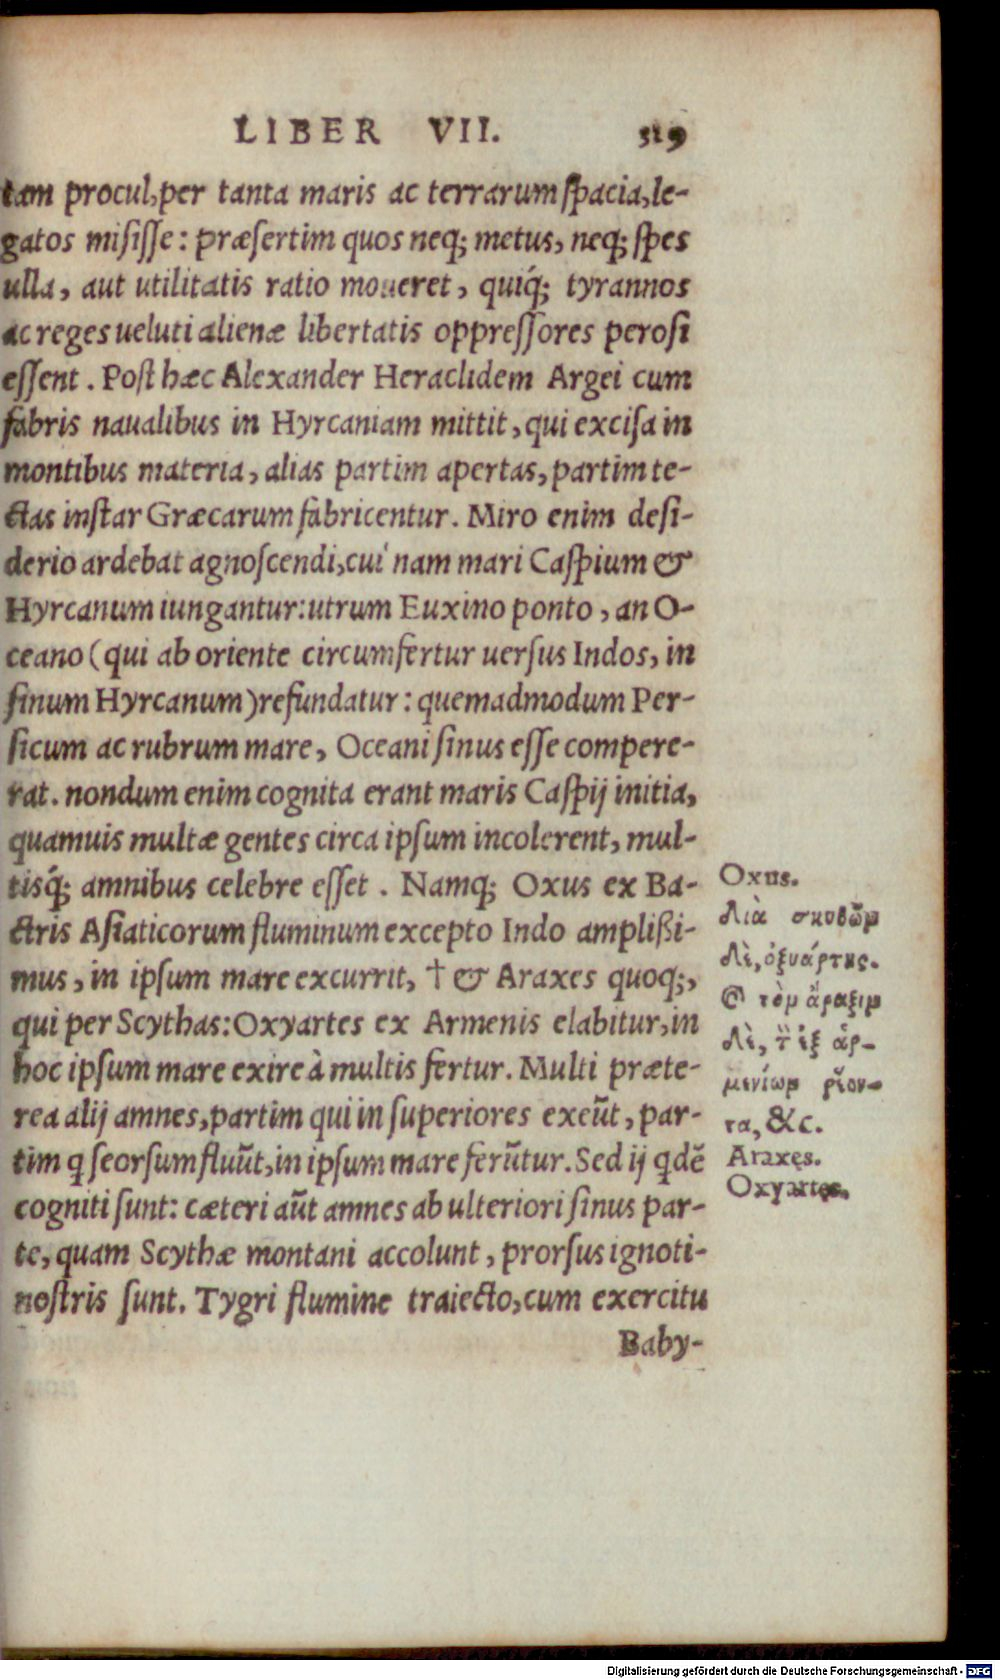 LIBER VII. 319
tam procul, per tanta maris ac terrarum ſpacia, le-
gatos miſiſſe: præſertim quos neq; metus, neq; ſpes
ulla, aut utilitatis ratio moueret, quiq́; tyrannos
ac reges ueluti alienæ libertatis oppreſſores peroſi
eſſent. Poſt hæc Alexander Heraclidem Argei cum
fabris naualibus in Hyrcaniam mittit, qui exciſa in
montibus materia, alias partim apertas, partim te-
ctas inſtar Græcarum fabricentur. Miro enim deſi-
derio ardebat agnoſcendi, cui nam mari Caſpium &
Hyrcanum iungantur: utrum Euxino ponto, an O-
ceano (qui ab oriente circumfertur uerſus Indos, in
ſinum Hyrcanum) refundatur: quemadmodum Per-
ſicum ac rubrum mare, Oceani ſinus eſſe compere-
rat. nondum enim cognita erant maris Caſpij initia,
quamuis multæ gentes circa ipſum incolerent, mul-
tisq́; amnibus celebre eſſet. Namq; Oxus ex Ba-
ctris Aſiaticorum fluminum excepto Indo ampliſsi-
mus, in ipſum mare excurrit, † & Araxes quoq;,
qui per Scythas: Oxyartes ex Armenis elabitur, in
hoc ipſum mare exire à multis fertur. Multi præte-
rea alij amnes, partim qui in ſuperiores exeũt, par-
tim q ſeorſum fluũt, in ipſum mare ferũtur. Sed ij qdẽ
cogniti ſunt: cæteri aũt amnes ab ulteriori ſinus par-
te, quam Scythæ montani accolunt, prorſus ignoti-
noſtris ſunt. Tygri flumine traiecto, cum exercitu
Baby-
Oxus.
διὰ σκυθῶν
δὲ, ὀξυάρτης.
@ τὸν ἄραξιν
δὲ, τ̀ ἐξ ἀρ-
μενίων ῥέον-
τα, &c.
Araxes.
Oxyartes.
Digitalisierung gefördert durch die Deutsche Forschungsgemeinschaft - DFG